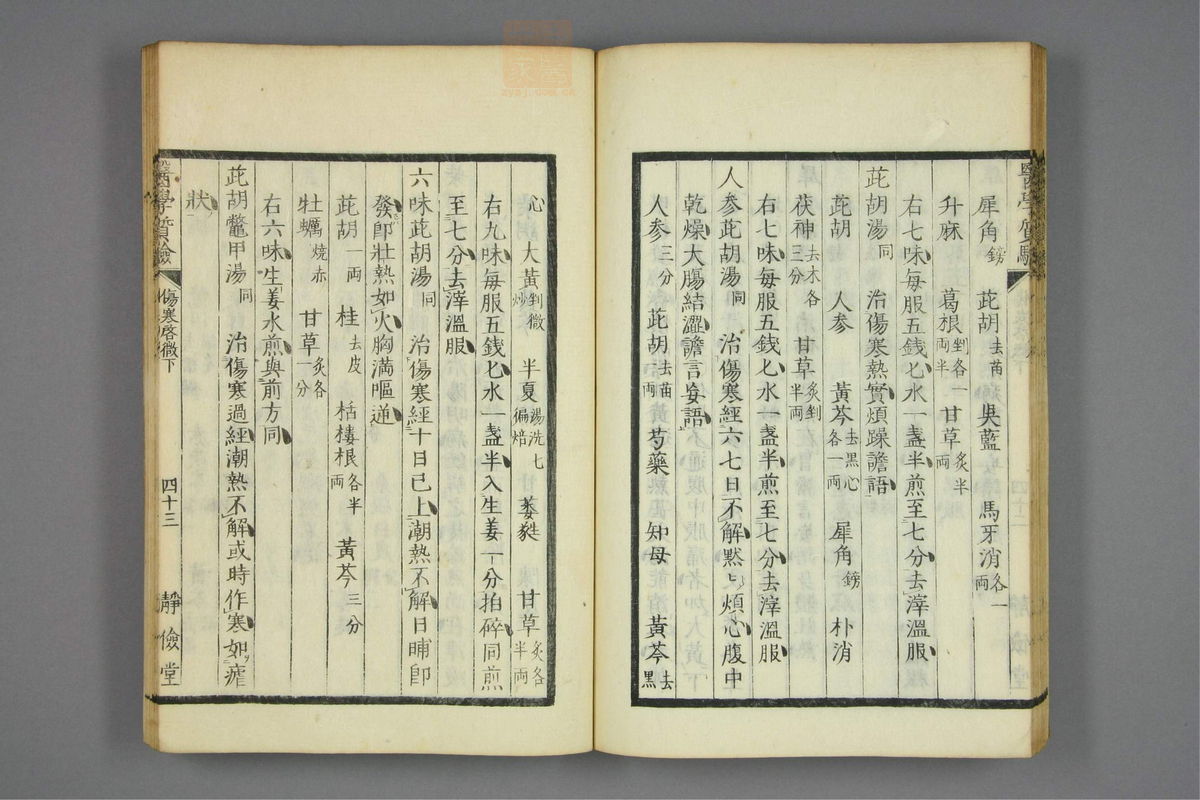 犀角鎊 茈胡去苗 吳藍 馬牙消各一兩
升麻 葛根剉各一兩半 甘草炙半兩
右七味每服五錢匕水一盞半煎至七分去滓溫服
茈胡湯同 治傷寒熱實煩躁譫語
茈胡 人参 黃芩去黑心各一兩 犀角鎊 朴消
茯神去木各三分 甘草炙剉半兩
右七味每服五錢匕水一盞半煎至七分去滓溫服
人参茈胡湯同 治傷寒經六七日不解黙〻煩心腹中
乾燥大腸結澀譫言妄語
人参三分 茈胡去苗兩 芍藥 知母 黃芩去黑
心 大黃剉微炒 半夏湯洗七徧焙 萎蕤 甘草炙各半兩
右九味每服五錢匕水一盞半入生姜一分拍碎同煎
至七分去滓溫服
六味茈胡湯同 治傷寒經十日已上潮熱不解日晡卽
發卽壯熱如火胸満嘔逆
茈胡一兩 桂去皮 栝樓根各半兩 黃芩三分
牡蠣燒赤 甘草炙各一分
右六味生姜水煎與前方同
茈胡鼈甲湯同 治傷寒過經潮熱不解或時作寒如瘧
狀
醫學質驗 傷寒啓微下 四十三 靜儉堂